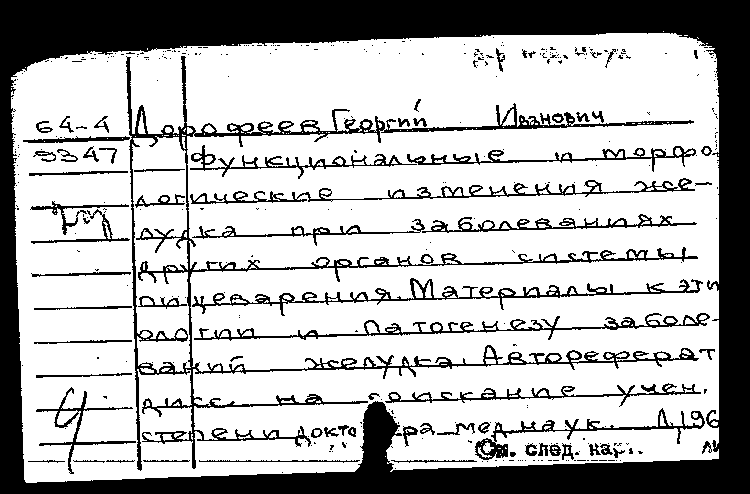 д-р мед. наук
64-4 Дорофеев Георгий Иванович
9347 Функциональные и морфо
логические изменения же-
лудка при заболеваниях
других органов системы
пищеварения. Материалы к эти
ологии и патогенезу заболе-
ваний желудка. Автореферат
дисс. на соискание учен.
степени докто ра мед. наук. Л, 196
См. след. кар.